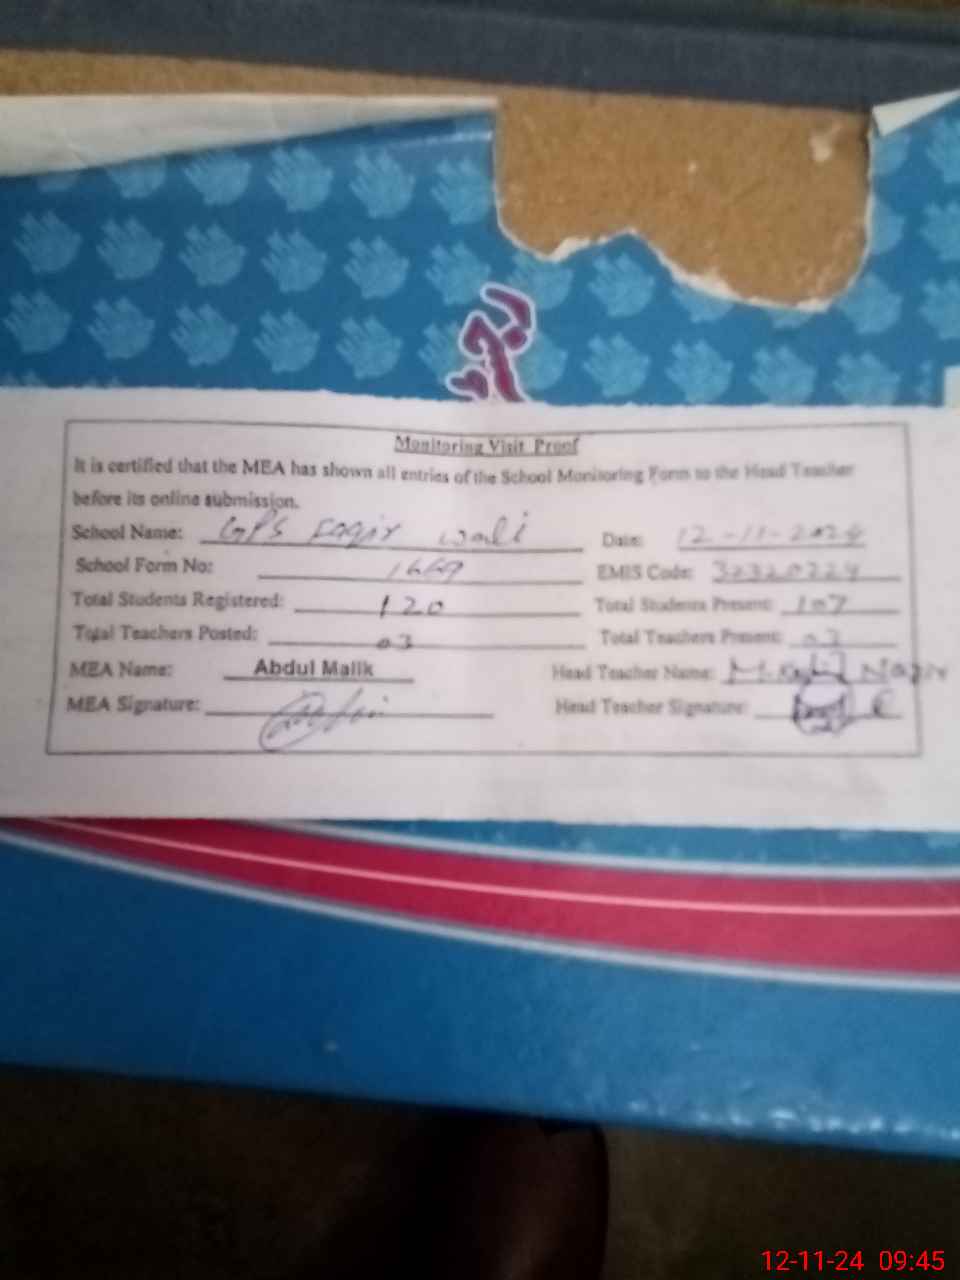 Monitoring Visit Proof
It is certified that the MEA has shown all entries of the School Monitoring Form to the Head Teacher
before its online submission.
School Name: GPS Faqir wali Date: 12-11-2024
School Form No: EMIS Code: 32320224
Total Students Registered: 120 Total Students Present: 107
Total Teachers Posted: 03 Total Teachers Present: 03
MEA Name: Abdul Malik Head Teacher Name: Nazir
MEA Signature: Head Teacher Signature:
12-11-24 09:45